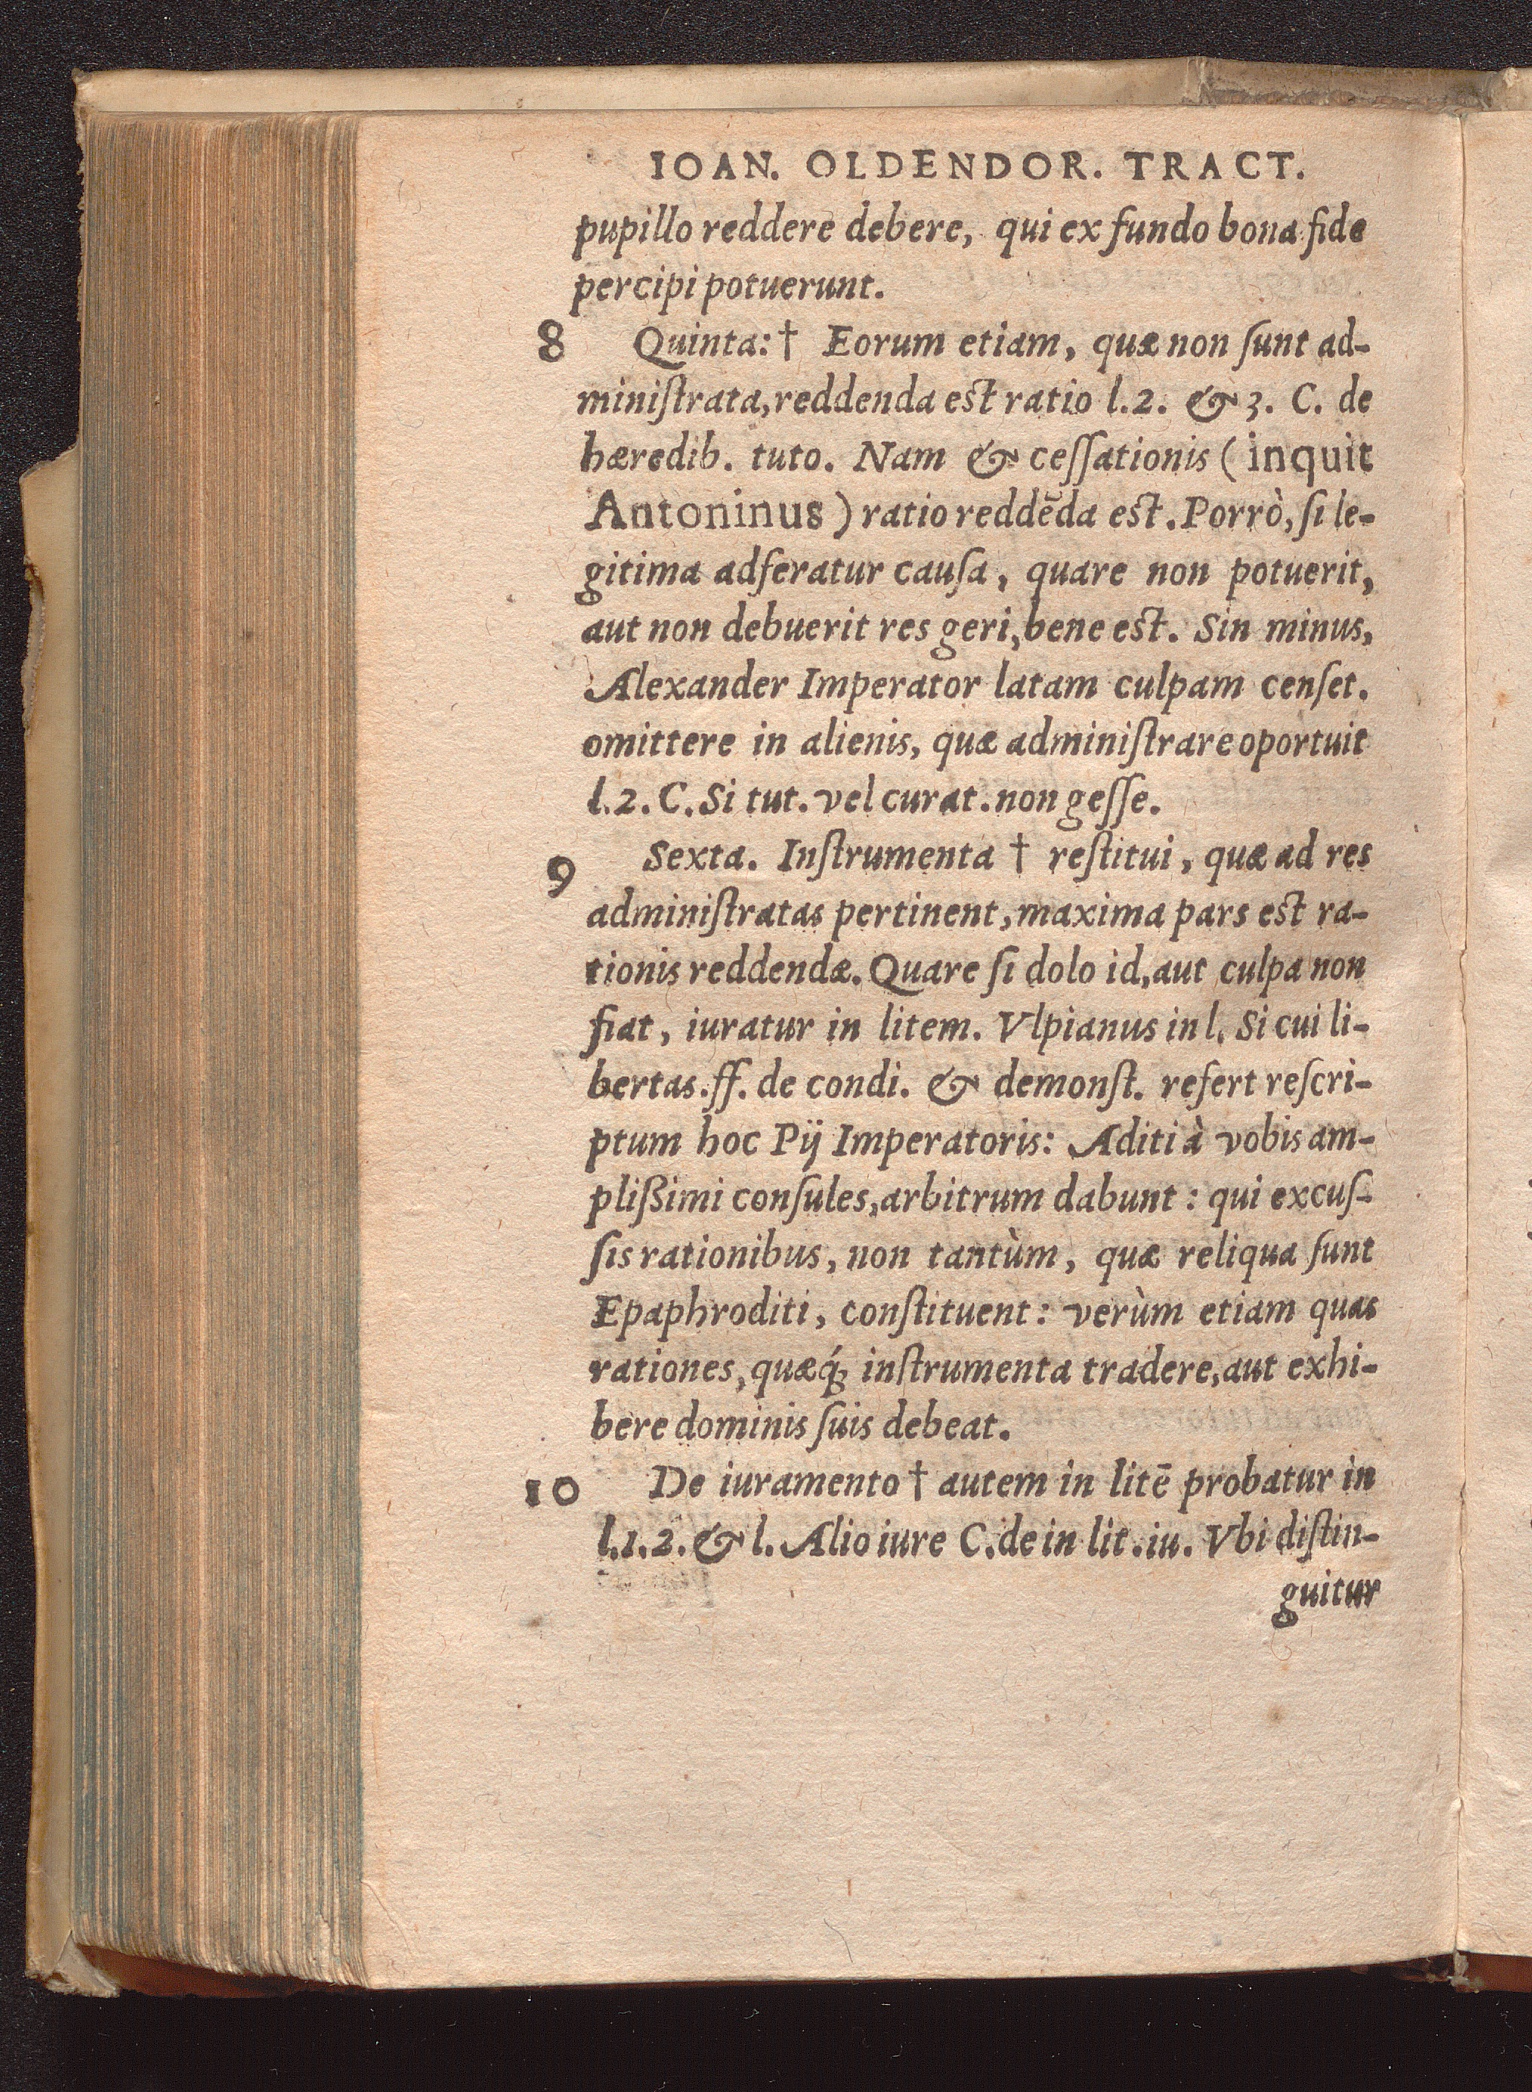 IOAN. OLDENDOR. TRACT.
pupillo reddere debere, qui ex fundo bona fide
percipi potuerunt.
8 Quinta: † Eorum etiam, quæ non ſunt ad-
miniſtrata, reddenda eſt ratio l.2. & 3. C. de
hæredib. tuto. Nam & ceſſationis (inquit
Antoninus) ratio reddēda eſt. Porrò, ſi le-
gitima adferatur cauſa, quare non potuerit,
aut non debuerit res geri, bene eſt. Sin minus,
Alexander Imperator latam culpam cenſet.
omittere in alienis, quæ adminiſtrare oportuit
l.2. C. Si tut. vel curat. non geſſe.
9 Sexta. Inſtrumenta † reſtitui, quæ ad res
adminiſtratas pertinent, maxima pars eſt ra-
tionis reddendæ. Quare ſi dolo id, aut culpa non
fiat, iuratur in litem. Vlpianus in l. Si cui li-
bertas. ff. de condi. & demonſt. refert reſcri-
ptum hoc Pij Imperatoris: Aditi à vobis am-
plißimi conſules, arbitrum dabunt: qui excuſ-
ſis rationibus, non tantùm, quæ reliqua ſunt
Epaphroditi, conſtituent: verùm etiam quas
rationes, quæq́; inſtrumenta tradere, aut exhi-
bere dominis ſuis debeat.
10 De iuramento † autem in litē probatur in
l.1.2. & l. Alio iure C. de in lit. iu. Vbi diſtin-
guitur